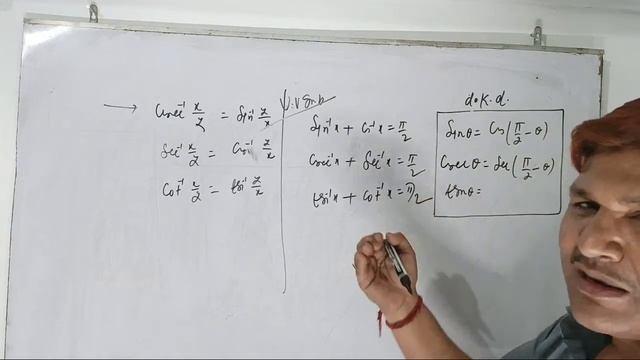 → cosec⁻¹ x/2 = sin⁻¹ 2/x
sec⁻¹ x/2 = cos⁻¹ 2/x
cot⁻¹ x/2 = tan⁻¹ 2/x
sin⁻¹x + cos⁻¹x = π/2
cosec⁻¹x + sec⁻¹x = π/2 ✓
tan⁻¹x + cot⁻¹x = π/2 ✓
d.k.d.
sinθ = cos(π/2 - θ)
cosecθ = sec(π/2 - θ)
tanθ =